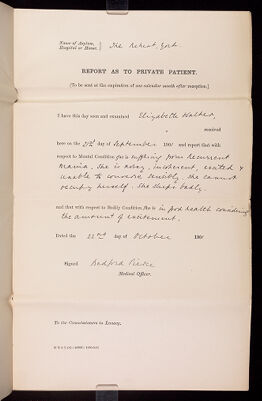 Name of Asylum, Hospital or House. } The Retreat York
REPORT AS TO PRIVATE PATIENT.
[To be sent at the expiration of one calendar month after reception.]
I have this day seen and examined Elizabeth
received
here on the day of September 190 and report that with
respect to Mental Condition she is suffering from Recurrent
Mania. She is noisy, incoherent, excited &
unable to converse sensibly. She cannot
occupy herself. She sleeps badly.
and that with respect to Bodily Condition she is in good health considering
the amount of excitement.
Dated this 22nd day of October 190
Signed Bedford Pierce
Medical Officer.
To the Commissioners in Lunacy.